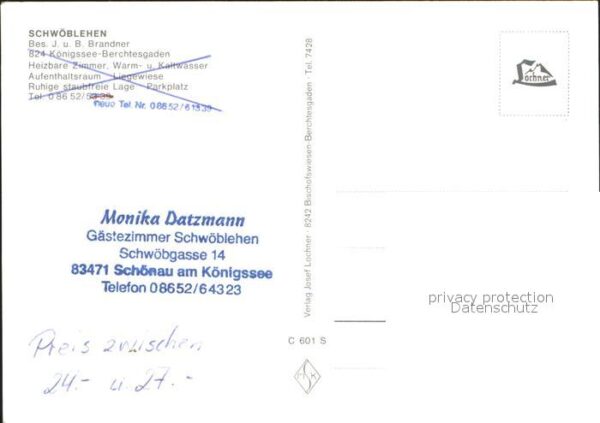 SCHWÖBLEHEN
Bes. J. u. B. Brandner
824 Königssee-Berchtesgaden
Heizbare Zimmer, Warm- u. Kaltwasser
Aufenthaltsraum - Liegewiese
Ruhige staubfreie Lage - Parkplatz
Tel. 0 86 52/
neue Tel. Nr. 08652/61339
Monika Datzmann
Gästezimmer Schwöblehen
Schwöbgasse 14
83471 Schönau am Königssee
Telefon 08652/64323
Preis zwischen
24.- u. 27.-
Verlag Josef Lochner - 8242 Bischofswiesen-Berchtesgaden - Tel. 7428
C 601 S
Lochner
privacy protection
Datenschutz